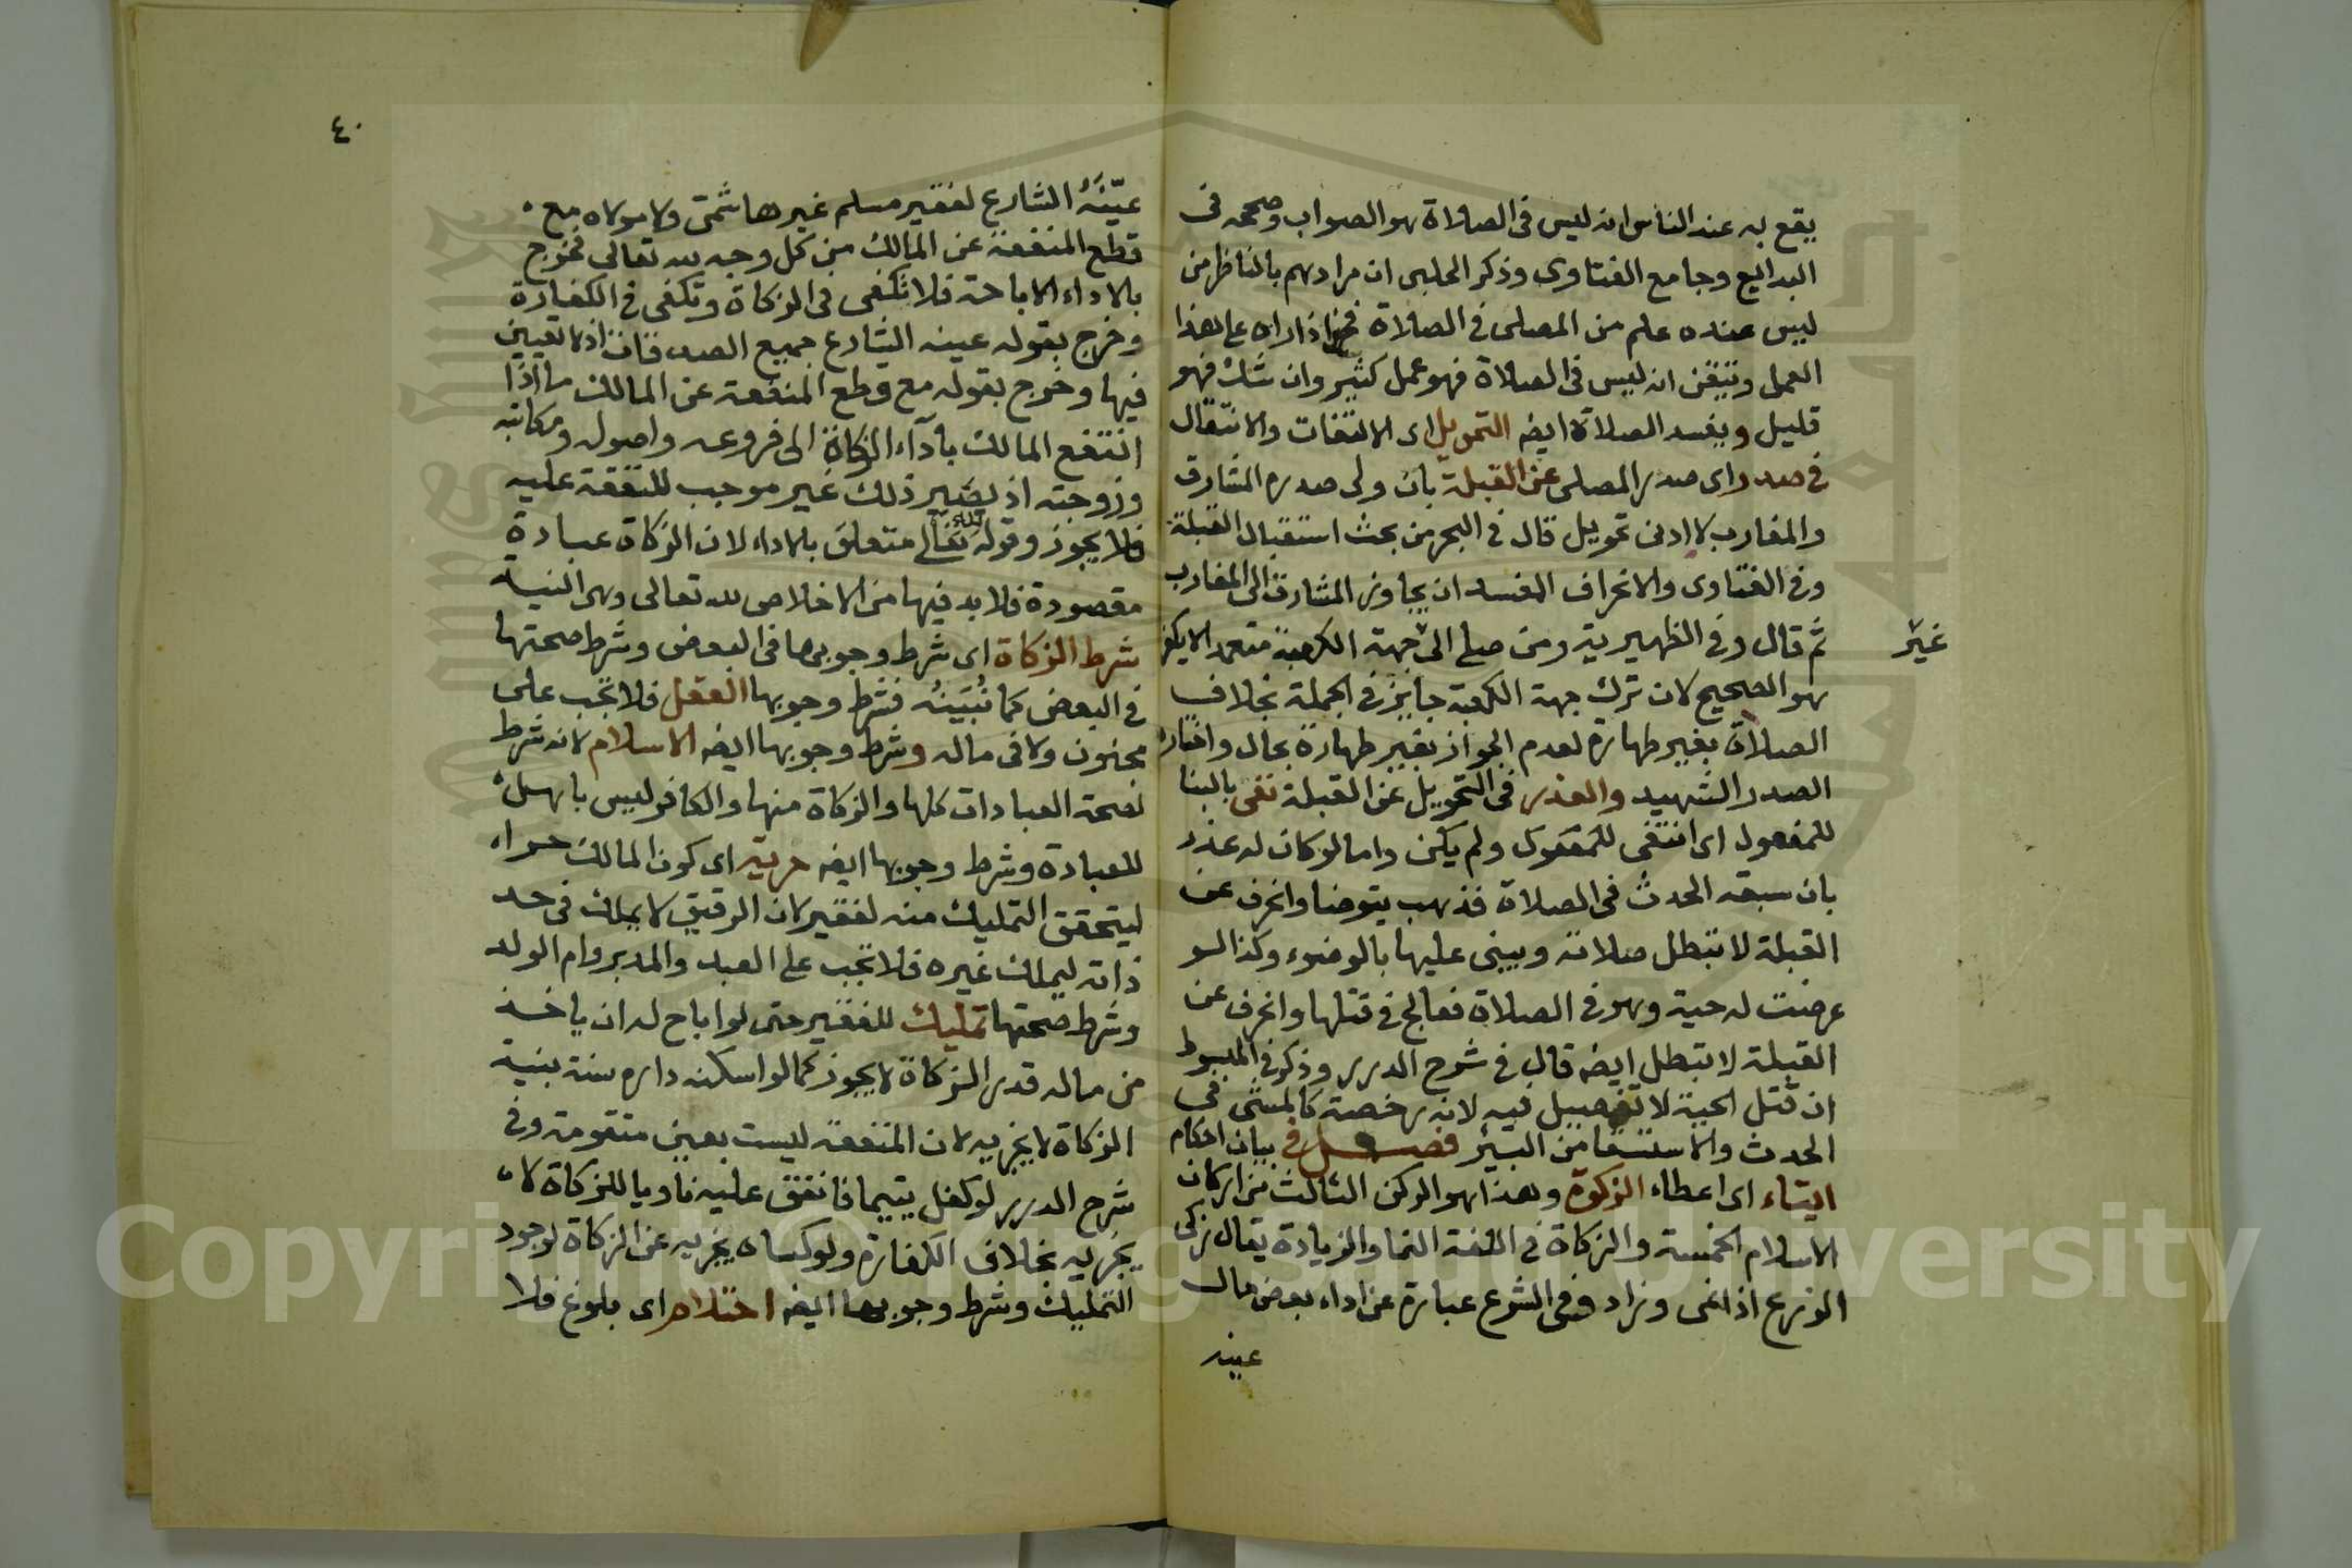 يقع به عند الناس انه ليس فى الصلاة هو الصواب وصححه فى
البدايع وجامع الفتاوى وذكر الحلبى ان مرادهم بالناظر من
ليس عنده علم من المصلى فى الصلاة فحينئذ اذا راه على هذا
العمل وتيقن انه ليس فى الصلاة فهو عمل كثير وان شك فهو
قليل ويفسد الصلاة ايضه التحويل اى الالتفات والانتقال
فى صدر اى صدر المصلى عن القبلة بان ولى صدره المشارق
والمغارب لا ادنى تحويل قال فى البحر من بحث استقبال القبلة
وفى الفتاوى والانحراف المفسد ان يجاوز المشارق الى المغارب
غير
ثم قال وفى الظهيرية ومن صلى الى جهة الكعبة متعمدا لا يكفر
هو الصحيح لان ترك جهة الكعبة جايز فى الجملة بخلاف
الصلاة بغير طهارة لعدم الجواز بغير طهارة بحال واختاره
الصدر الشهيد والعذر فى التحويل عن القبلة نفى بالبنا
للمفعول اى انتفى للمفعول ولم يكن واما لو كان له عذر
بان سبقه الحدث فى الصلاة فذهب يتوضا وانحرف عن
القبلة لا تبطل صلاته ويبنى عليها بالوضوء وكذا لو
عرضت له حية وهو فى الصلاة فعالج فى قتلها وانحرف عن
القبلة لا تبطل ايضه قال فى شرح الدرر وذكر فى المبسوط
ان قتل الحية لا تفصيل فيه لانه رخصة كالمشى فى
الحدث والاستسقا من البئر فصل فى بيان احكام
ايتاء اى اعطاء الزكوة وهذا هو الركن الثالث من اركان
الاسلام الخمسة والزكاة فى اللغة النما والزيادة يقال زكى
الزرع اذا نمى وزاد وفى الشرع عبارة عن اداء بعض مال
عينه
٤٠
عيّنَهُ الشارع لفقير مسلم غير هاشمى ولا مولاه مع
قطع المنفعة عن المالك من كل وجه لله تعالى فخرج
بالاداء الاباحة فلا تكفى فى الزكاة وتكفى فى الكفارة
وخرج بقوله عينه الشارع جميع الصدقات اذ لا تعيين
فيها وخرج بقوله مع قطع المنفعة عن المالك ما اذا
انتفع المالك بأداء الزكاة الى فروعه واصوله ومكاتبه
وزوجته اذ يصير ذلك غير موجب للنفقة عليه
فلا يجوز وقوله لله تعالى متعلق بالاداء لان الزكاة عبادة
مقصودة فلا بد فيها من الاخلاص لله تعالى وهى النية
شرط الزكاة اى شرط وجوبها فى البعض وشرط صحتها
فى البعض كما نُبَيّنُه فشرط وجوبها العقل فلا تجب على
مجنون ولا فى ماله وشرط وجوبها ايضه الاسلام لانه شرط
لصحة العبادات كلها والزكاة منها والكافر ليس باهل
للعبادة وشرط وجوبها ايضه حرية اى كون المالك حرا
ليتحقق التمليك منه لفقير لان الرقيق لا يملك فى حد
ذاته ليملك غيره فلا تجب على العبد والمدبر وام الولد
وشرط صحتها تمليك للفقير حتى لو اباح له ان ياخذ
من ماله قدر الزكاة لا يجوز كما لو اسكنه داره سنة بنية
الزكاة لا يجزيه لان المنفعة ليست بعين متقومة وفى
شرح الدرر لو كفل يتيما فانفق عليه ناويا للزكاة لا
يجزيه بخلاف الكفارة ولو كساه يجزيه عن الزكاة لوجود
التمليك وشرط وجوبها ايضه احتلام اى بلوغ فلا